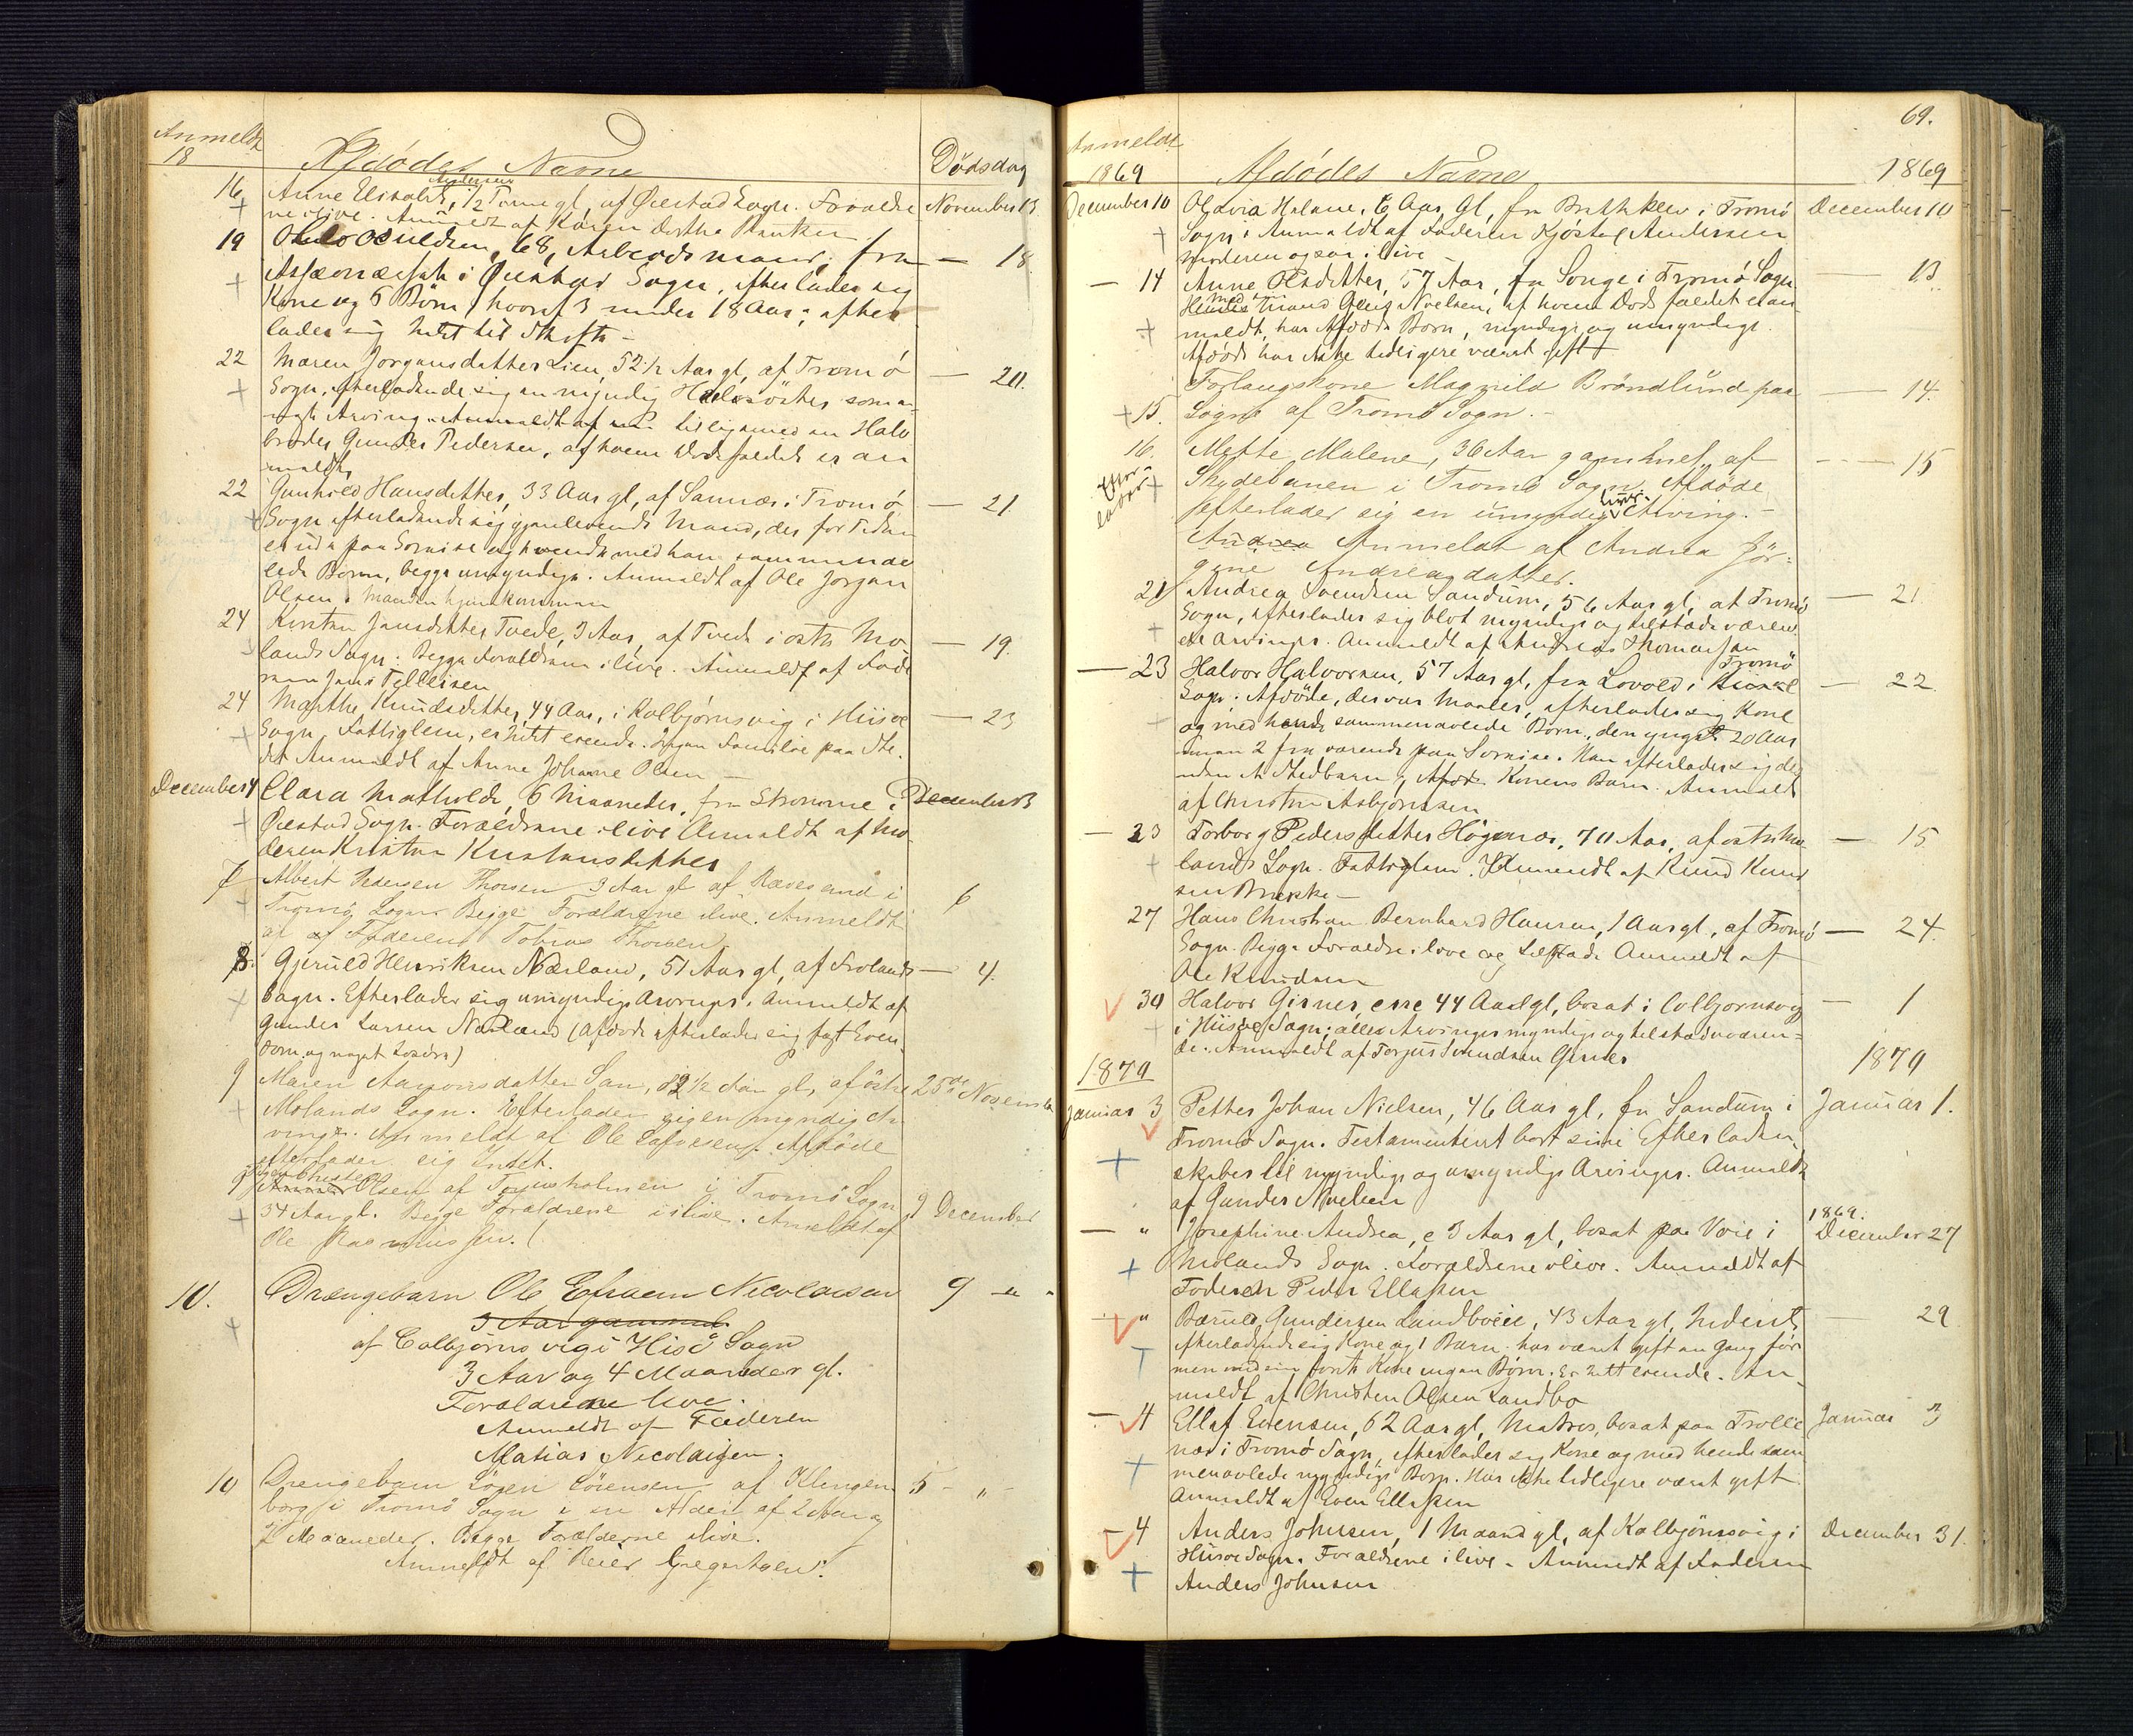 Anmeldt
18
Afdødes Navne
Dødsdag
16 Anne Elisabeth Andersen, 1/2 Time gl, af Øiestad Sogn. Foræld- November 13
rene ilive. Anmeldt af Karen Dorthea
19 68, Arbeidsmand, fra — 18
i Øiestad Sogn, efterlader sig
Kone og 6 Børn, hvoraf 3 under 18 Aar; efter
lader sig Intet til Skifte —
22 Maren Jørgensdatter Lien, 52 1/2 Aar gl, af Tromø — 20.
Sogn, efterladende sig en myndig Halvsøster som
Arving. Anmeldt af tilligemed en Halv
broder Gunder Pedersen, af hvem Dødsfaldet er an
meldt.
22 Gunhild Hansdatter, 33 Aar gl, af Sannes i Tromø — 21.
Sogn efterladende sig gjenlevende Mand, der for Tiden
er ude paa Søreise og med ham sammenav
lede Børn, begge umyndige. Anmeldt af Ole Jørgen
Olsen. Manden hjemkommen
24 Kirsten Jensdatter Tvede, 3 Aar, af Tvede i østre Mo — 19.
lands Sogn. Begge Forældrene ilive. Anmeldt af Fade
ren Jens Tellefsen
24 Marthe Knudsdatter, 44 Aar, i Kolbjørnsvig i Hisøe — 23
Sogn, Fattiglem, er Intet eiende. Ingen Familie paa Ste
det. Anmeldt af Anne Johanne Olsen —
December 4 Clara Mathilde, 6 Maaneder, fra Strømme i December 3
Øiestad Sogn. Forældrene ilive Anmeldt af Mo
deren Kristen Kristensdatter
7 Albert Pedersen Thorsen 3 Aar gl af Rævesand i 6
Tromø Sogn. Begge Forældrene ilive. Anmeldt
af af Faderen Tobias Thorsen
8. Gjeruld Henriksen Næsland, 51 Aar gl, af Frolands — 4.
Sogn. Efterlader sig umyndige Arvinger. Anmeldt af
Gunder Larsen Næsland (Afdøde efterlader sig fast Eien
dom og noget Løsøre)
9 Maren Aanonsdatter San, 82 1/2 Aar gl, af østre 25de Novemb
Molands Sogn. Efterlader sig en myndig Ar
ving. Anmeldt af Ole Afdøde
efterlader sig Intet.
9 Olsen af i Tromø Sogn 9 December
34 Aar gl. Begge Forældrene i ilive. Anmeldt af
Ole Rasmussen.
10. Drængebarn Ole Efraem Nicolaisen 9 — " —
3 Aar gammel
af Colbjørns vig i Hisø Sogn
3 Aar og 4 Maaneder gl.
Forældrene live.
Anmeldt af Faderen
Matias Nicolaisen.
10 Drengebarn Søren Sørensen af Klingen 5 — " —
borg i Tromø Sogn i en Alder af 2 Aar og
7 Maaneder. Begge Forælderne ilive.
Anmeldt af Reier Gregertsen.
69.
Anmeldt
1869 Afdødes Navne 1869
December 10 Oldavia Helene, 6 Aar Gl, fra Brattekleiv i Tromø December 10
Sogn. Anmeldt af Faderen Kjøstel Andersen
Moderen ogsaa ilive
— 14 Anne Olsdatter, 57 Aar, fra Songe i Tromø Sogn — 13.
med Mand Nielsen, af hvem Dødsfaldet er an
meldt, har Afdøde Børn, myndige og umyndige.
Afdøde har ikke tidligere været gift
15. Forlaugskone Magnild Brøndlund paa — 14.
Søgne af Tromø Sogn. —
16. Mette Malene, 36 Aar gammel af — 15
Skydebanen i Tromø Sogn. Afdøde
efterlader sig en umyndig Livs- Arving. —
Andrea Anmeldt af Andrea Jør-
gine Andreasdatter.
21 Andrea Svendsen Sandum, 56 Aar gl, af Tromø — 21
Sogn, efterlader sig blot myndige og tilstedeværen
de Arvinger. Anmeldt af Andreas Thomassen
— 23 Halvor Halvorsen, 57 Aar gl, fra Løvold i Tromø — 22
Sogn. Afdøde, der var Maaler, efterlader sig Kone
og med hende sammenavlede Børn, den yngste 20 Aar
men 2 fraværende paa Søreise. Han efterlader sig des
uden et Stedbarn, Konens Barn. Anmeldt
af Christen Asbjørnsen
— 23 Torborg Pedersdatter Høgenes, 70 Aar, af østre Mo — 15
lands Sogn. Fattiglem. Anmeldt af Knud Knud
sen Brekke —
27 Hans Christian Bernhard Hansen, 1 Aar gl, af Tromø — 24.
Sogn. Begge Forældre ilive og tilstede. Anmeldt af
Ole Knudsen
30 Halvor Girnes, 44 Aar gl, bosat i Colbjørnsvig — 1
i Hisøe Sogn; alle Arvinger myndige og tilstedeværen=
de. Anmeldt af Torjus Svendsen Girnes
1870 1870
Januar 3 Petter Johan Nielsen, 46 Aar gl, fra Sandum i Januar 1.
Tromø Sogn. Testamenteret bort sine Efterladen
skaber til myndige og umyndige Arvinger. Anmeldt
af Gunder Nielsen
1869.
— " Josephine Andrea, 3 Aar gl, bosat paa Voie i December 27
Molands Sogn. Forældrene ilive. Anmeldt af
Faderen Peder Ellefsen
— " Gundersen Landbøe, 43 Aar gl, — 29
efterladende sig Kone og 1 Barn. har været gift en Gang før
men med sin første Kone ingen Børn. Er Intet eiende. An-
meldt af Christen Olsen Landbø
— 4 Ellef Evensen, 62 Aar gl, Matros, bosat paa Trolle Januar 3
næs i Tromø Sogn, efterlader sig Kone og med hende sam
menavlede myndige Børn. Har ikke tidligere været gift.
Anmeldt af Even Ellefsen
— 4 Anders Johnsen, 1 Maaned gl, af Kolbjørnsvig i December 31.
Hisøe Sogn. Forældrene ilive. Anmeldt af Faderen
Anders Johnsen